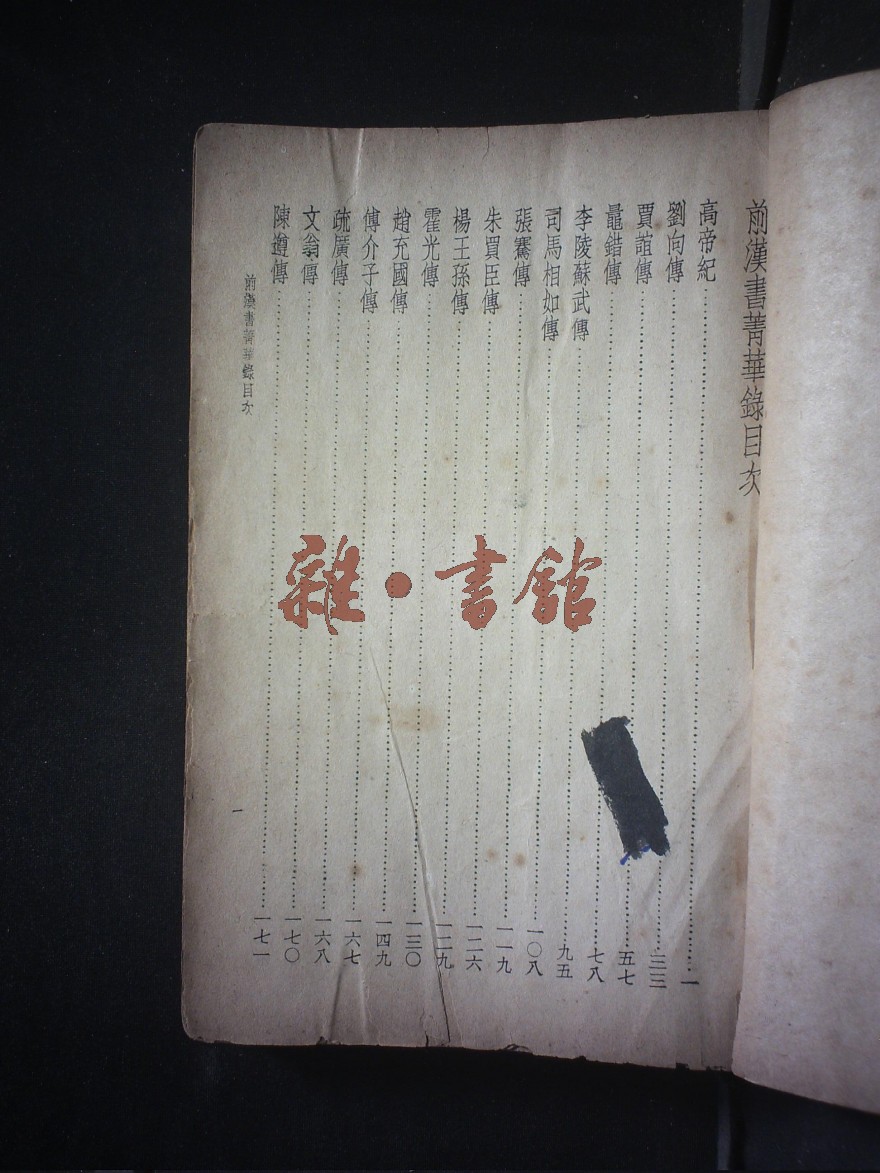 前漢書菁華錄目次
高帝紀……一
劉向傳……三三
賈誼傳……五七
鼂錯傳……七八
李陵蘇武傳……九五
司馬相如傳……一〇八
張騫傳……一一九
朱買臣傳……一二六
楊王孫傳……一二九
霍光傳……一三〇
趙充國傳……一四九
傅介子傳……一六七
疏廣傳……一六八
文翁傳……一七〇
陳遵傳……一七一
前漢書菁華錄目次
一
雜·書館